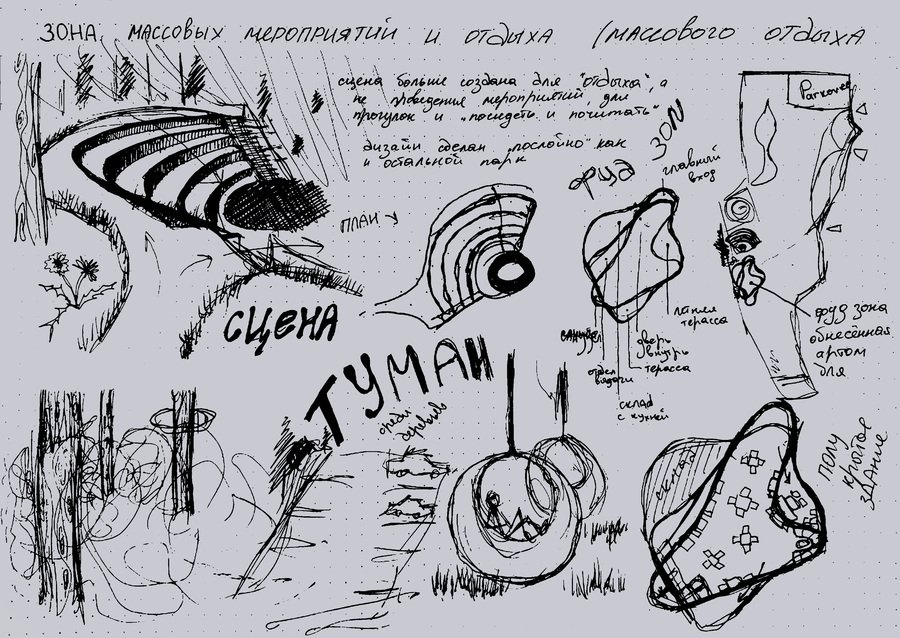 ЗОНА МАССОВЫХ МЕРОПРИЯТИЙ И ОТДЫХА (МАССОВОГО ОТДЫХА
сцена больше создана для "отдыха", а
не проведения мероприятий, для
прогулок и „посидеть и почитать"
дизайн сделан „послойно" как
и остальной парк
Parковка
ФУД ЗОN
главный
вход
ПЛАН
СЦЕНА
летняя
терасса
санузел
дверь
внутрь
отдел
выдачи
терасса
склад
с кухней
фудд зона
обнесённая
артом
для
ТУМАН
среди
деревьев
склад
ПОЛУ
КРЫТОЕ
ЗДАНИЕ